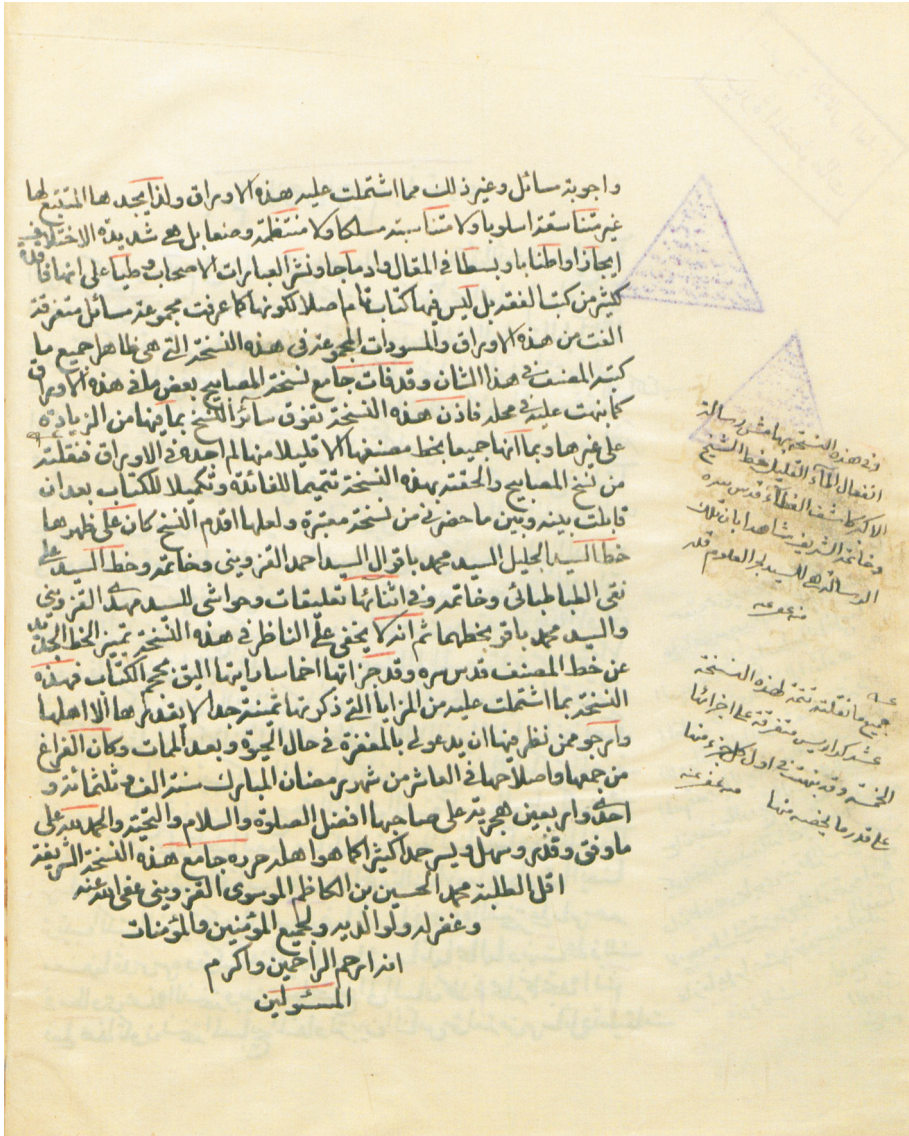 واجوبة مسائل وغير ذلك مما اشتملت عليه هذه الاوراق ولذا يجدها المتتبع لها
غير متناسقة اسلوبا ولا متناسبة مسلكا ولا منتظمة وضعا بل هي شديدة الاختلاف
ايجازا واطنابا وبسطا في المقال وادماجا ونشر العبارات الاصحاب وطيا على انها فاقدة
كثير من كتب الفقه بل ليس فيها كتاب تام اصلا لكونها كما عرفت مجموعة مسائل متفرقة
الفت من هذه الاوراق والمسودات المجموعة في هذه النسخة التي هي ظاهرا جميع ما
كتبه المصنف في هذا الشان وقد فات جامع نسخة المصابيح بعض ما في هذه الاوراق
كما نبهت عليه في محله فاذن هذه النسخة تفوق سائر النسخ بما فيها من الزيادة
على غيرها وبما انها جميعا بخط مصنفها الا قليلا منها لم اجده في الاوراق فنقلته
من نسخ المصابيح والحقته بهذه النسخة تتميما للفائدة وتكميلا للكتاب بعد ان
قابلت بينه وبين ما حضرني من نسخة معتبرة ولعلها اقدم النسخ كان على ظهرها
خط السيد الجليل السيد محمد باقر ال السيد احمد القزويني وخاتمه وخط السيد علي
نقي الطباطبائي وخاتمه وفي اثنائها تعليقات وحواشي للسيد مهدي القزويني
والسيد محمد باقر بخطهما ثم انه لا يخفى على الناظر في هذه النسخة تميز الخط
عن خط المصنف قدس سره وقد جزاتها اخماسا رايتها اليق بحجم الكتاب فهذه
النسخة بما اشتملت عليه من المزايا التي ذكرتها ثمينة جدا لا يقدرها الا اهلها
وارجو ممن نظر فيها ان يدعو لي بالمغفرة في حال الحيوة وبعد الممات وكان الفراغ
من جمعها واصلاحها في العاشر من شهر رمضان المبارك سنة الف وثلثمائة و
احدى واربعين هجرية على صاحبها افضل الصلوة والسلام والتحية والحمد لله على
ما وفق وقدر وسهل ويسر حمدا كثيرا كما هو اهله حرره جامع هذه النسخة الشريفة
اقل الطلبة محمد الحسين بن الكاظم الموسوي القزويني عفى الله عنه
وغفر له ولوالديه ولجميع المؤمنين والمؤمنات
انه ارحم الراحمين واكرم
المسئولين
وفي هذه النسخة بهامش رسالة
انفعال الماء القليل خط الشيخ
الاكبر كاشف الغطاء قدس سره
وخاتمه الشريف شاهدا بان تلك
الرسالة هي للسيد بحر العلوم قده
منه عفي عنه
جميع ما نقلته تتمة لهذه النسخة
عشر كراريس متفرقة على اجزائها
الخمسة وقد بينت في اول كل جزء منها
على قدر ما يخصه منها منه عفي عنه